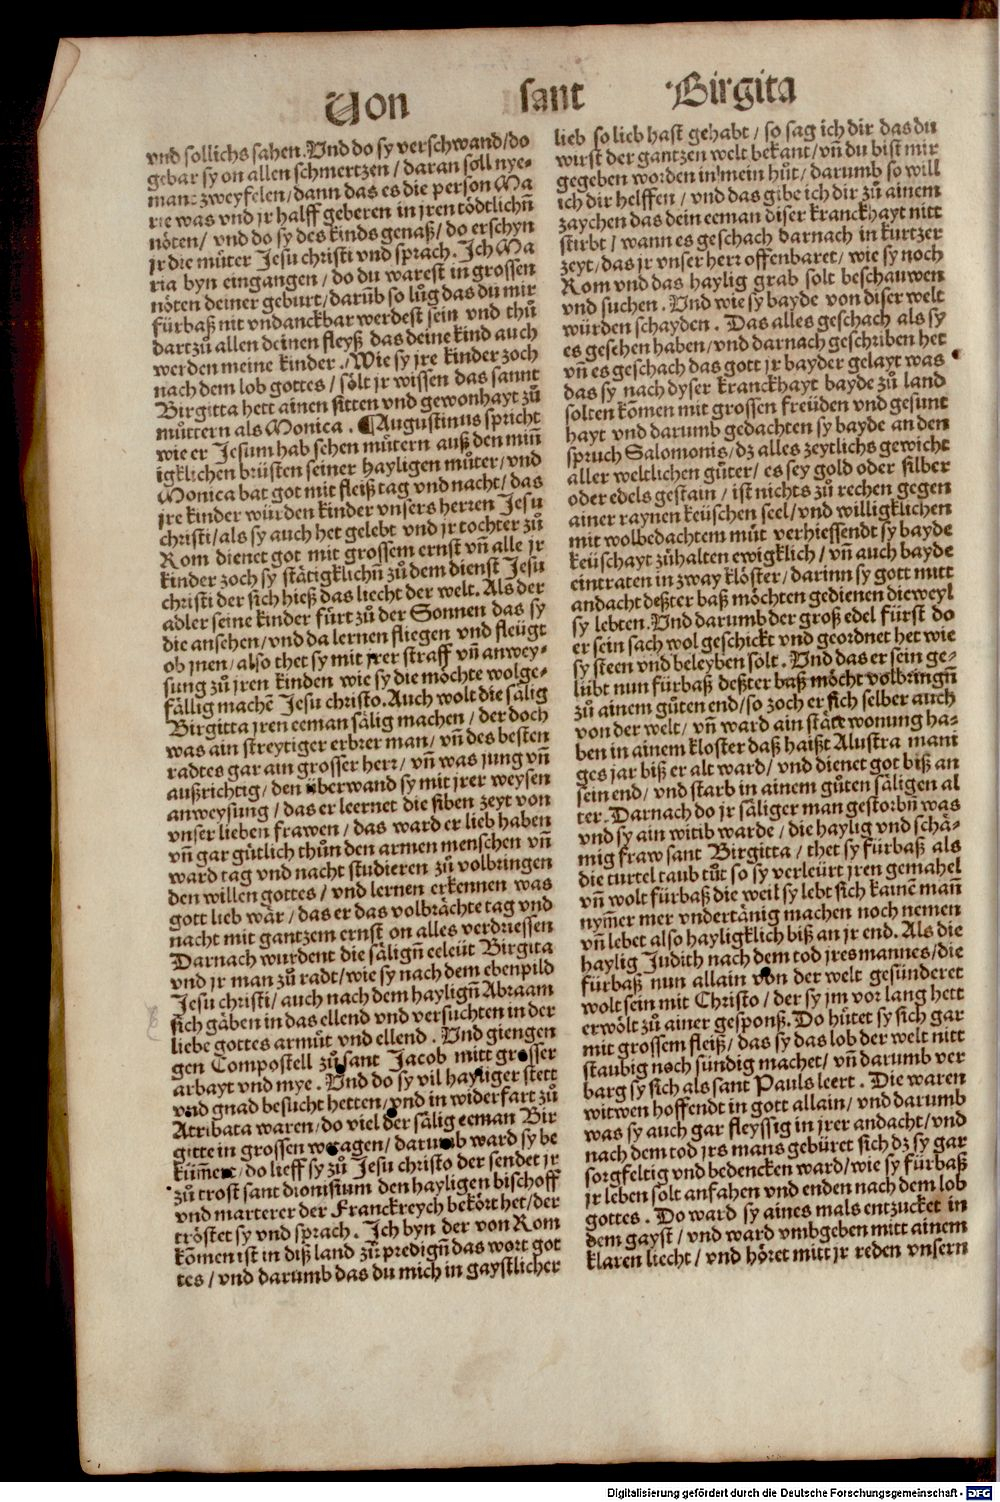 Von sant Birgita
vnd sollichs sahen. Vnd do sy verschwand / do
gebar sy on allen schmertzen / daran soll nye-
mant zweyfelen / dann das es die person Ma
rie was vnd jr halff geberen in jren tödtlichñ
nöten / vnd do sy des kinds genaß / do erschyn
jr die můter Jesu christi vnd sprach. Ich Ma
ria byn eingangen / do du warest in grossen
nöten deiner geburt / darũb so lůg das du mir
fürbaß nit vndanckbar werdest sein vnd thů
dartzů allen deinen fleyß das deine kind auch
werden meine kinder. / Wie sy jre kinder zoch
nach dem lob gottes / sölt jr wissen das sannt
Birgitta hett ainen sitten vnd gewonhayt zů
můttern als Monica. ¶ Augustinus spricht
wie er Jesum hab sehen můtern auß den miñ
igklichen brüsten seiner hayligen můter / vnd
Monica bat got mit fleiß tag vnd nacht / das
jre kinder würden kinder vnsers herren Jesu
christi / als sy auch het gelebt vnd jr tochter zů
Rom dienet got mit grossem ernst vñ alle jr
kinder zoch sy stätigklichñ zů dem dienst Jesu
christi der sich hieß das liecht der welt. Als der
adler seine kinder fürt zů der Sonnen das sy
die ansehen / vnd da lernen fliegen vnd fleügt
ob jnen / also thet sy mit jrer straff vñ anwey-
sung zů jren kinden wie sy die möchte wolge-
fällig machẽ Jesu christo. Auch wolt die sälig
Birgitta jren eeman sälig machen / der doch
was ain streytiger erbrer man / vñ des besten
radtes gar ain grosser herr / vñ was jung vñ
außrichtig / den überwand sy mit jrer weysen
anweysung / das er leernet die siben zeyt von
vnser lieben frawen / das ward er lieb haben
vñ gar gůtlich thůn den armen menschen vñ
ward tag vnd nacht studieren zů volbringen
den willen gottes / vnd lernen erkennen was
gott lieb wär / das er das volbrächte tag vnd
nacht mit gantzem ernst on alles verdriessen
Darnach wurdent die säligñ eeleüt Birgita
vnd jr man zů radt / wie sy nach dem ebenpild
Jesu christi / auch nach dem hayligñ Abraam
sich gäben in das ellend vnd versuchten in der
liebe gottes armůt vnd ellend. Vnd giengen
gen Compostell zů sant Jacob mitt grosser
arbayt vnd mye. Vnd do sy vil hayliger stett
vnd gnad besucht hetten / vnd in widerfart zů
Atribata waren / do viel der sälig eeman Bir
gitte in grossen wetagen / darumb ward sy be
küm̃ert / do lieff sy zů Jesu christo der sendet jr
zů trost sant dionisium den hayligen bischoff
vnd marterer der Franckreych bekört het / der
tröstet sy vnd sprach. Ich byn der von Rom
kõmen ist in diß land zů predigñ das wort got
tes / vnd darumb das du mich in gaystlicher
lieb so lieb hast gehabt / so sag ich dir das du
wirst der gantzen welt bekant / vñ du bist mir
gegeben worden in mein hůt / darumb so will
ich dir helffen / vnd das gibe ich dir zů ainem
zaychen das dein eeman diser kranckhayt nitt
stirbt / wann es geschach darnach in kurtzer
zeyt / das jr vnser herr offenbaret / wie sy noch
Rom vnd das haylig grab solt beschauwen
vnd suchen. Vnd wie sy bayde von diser welt
würden schayden. Das alles geschach als sy
es gesehen haben / vnd darnach geschriben het
vñ es geschach das gott jr bayder gelayt was
das sy nach dyser kranckhayt bayde zů land
solten kõmen mit grossen freüden vnd gesunt
hayt vnd darumb gedachten sy bayde an den
spruch Salomonis / dz alles zeytlichs gewicht
aller weltlichen gůter / es sey gold oder silber
oder edels gestain / ist nichts zů rechen gegen
ainer raynen keüschen seel / vnd willigklichen
mit wolbedachtem můt verhiessendt sy bayde
keüschayt zůhalten ewigklich / vñ auch bayde
eintraten in zway klöster / darinn sy gott mitt
andacht deßter baß möchten gedienen dieweyl
sy lebten. Vnd darumb der groß edel fürst do
er sein sach wol geschickt vnd geordnet het wie
sy steen vnd beleyben solt. Vnd das er sein ge-
lübt nun fürbaß deßter baß möcht volbringñ
zů ainem gůten end / so zoch er sich selber auch
von der welt / vñ ward ain stäte wonung ha-
ben in ainem kloster daß haißt Alustra mani
ges jar biß er alt ward / vnd dienet got biß an
sein end / vnd starb in ainem gůten säligen al
ter. Darnach do jr säliger man gestorbñ was
vnd sy ain witib warde / die haylig vnd schä-
mig fraw sant Birgitta / thet sy fürbaß als
die turtel taub tůt so sy verleürt jren gemahel
vñ wolt fürbaß die weil sy lebt sich kainẽ mañ
nym̃er mer vndertänig machen noch nemen
vñ lebet also hayligklich biß an jr end. Als die
haylig Judith nach dem tod jres mannes / die
fürbaß nun allain von der welt gesünderet
wolt sein mit Christo / der sy jm vor lang hett
erwölt zů ainer gesponß. Do hůtet sy sich gar
mit grossem fleiß / das sy das lob der welt nitt
staubig noch sündig machet / vñ darumb ver
barg sy sich als sant Pauls leert. Die waren
witwen hoffendt in gott allain / vnd darumb
was sy auch gar fleyssig in jrer andacht / vnd
nach dem tod jrs mans gebüret sich dz sy gar
sorgfeltig vnd bedencken ward / wie sy fürbaß
jr leben solt anfahen vnd enden nach dem lob
gottes. Do ward sy aines mals entzucket in
dem gayst / vnd ward vmbgeben mitt ainem
klaren liecht / vnd höret mitt jr reden vnsern
Digitalisierung gefördert durch die Deutsche Forschungsgemeinschaft - DFG